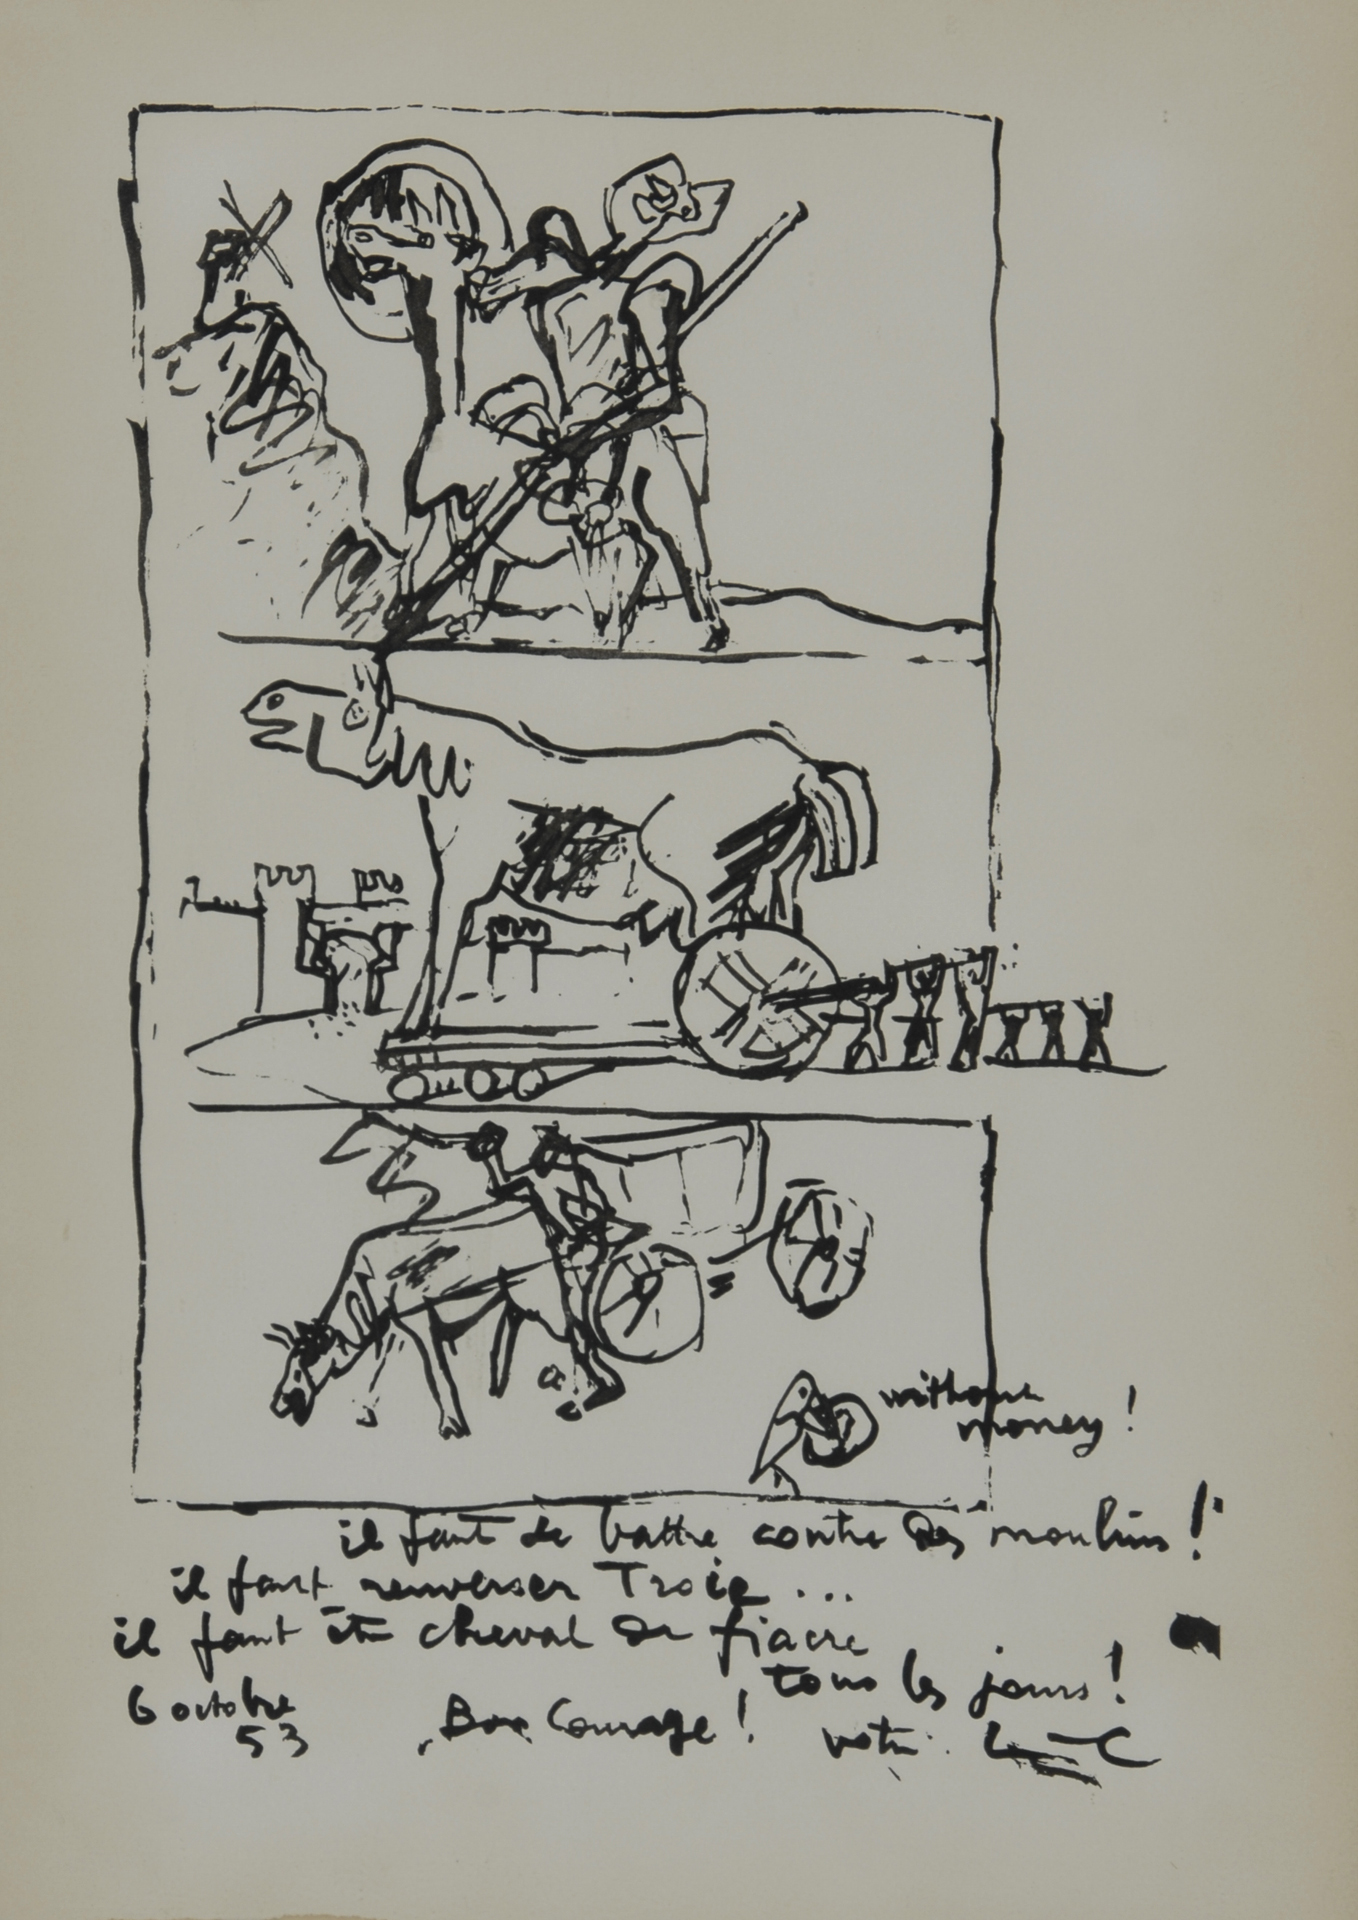 without
money !
il faut se battre contre des moulins !
il faut renverser Troie ...
il faut être cheval de fiacre
tous les jours !
6 octobre
53
Bon Courage !
votre